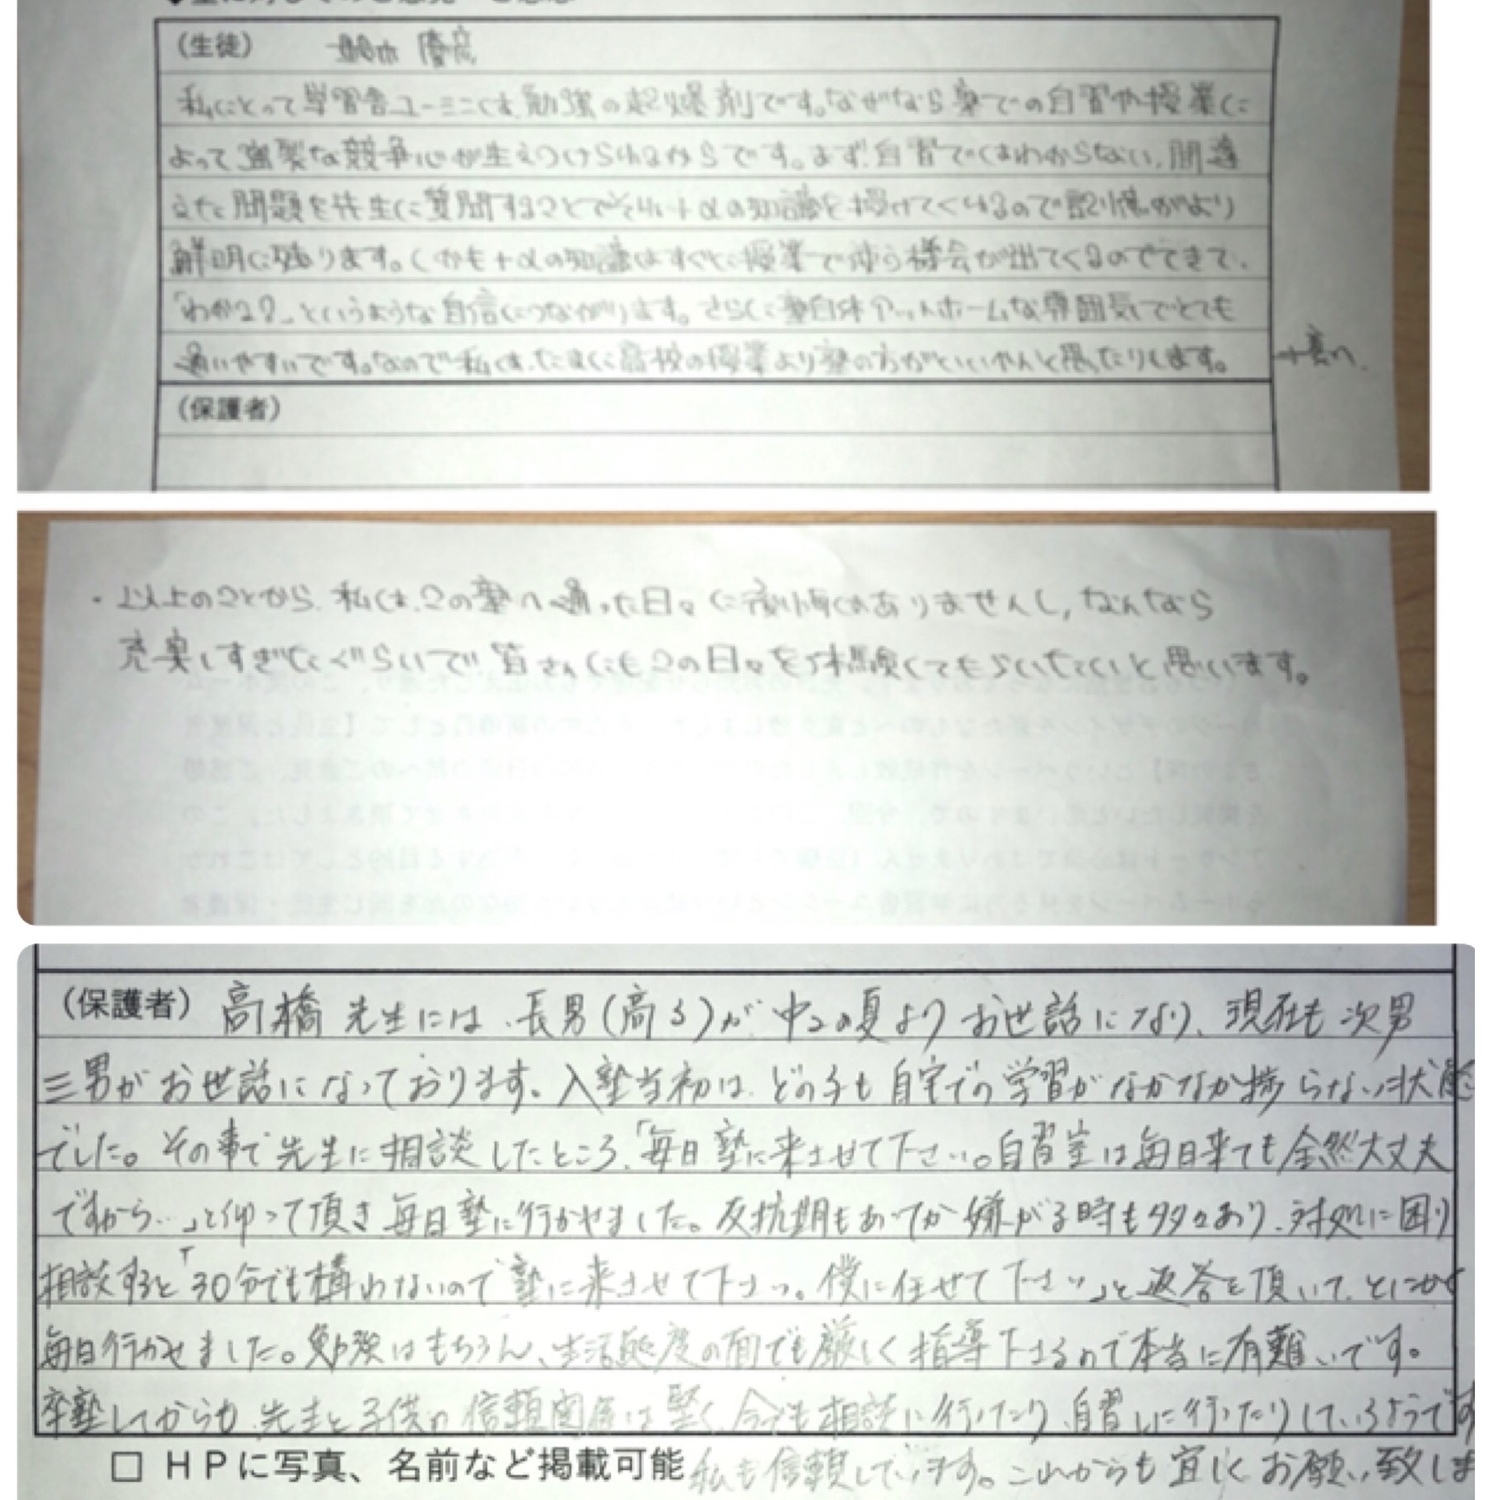 (生徒)
私にとって学習舎ユーミンは、勉強の起爆剤です。なぜなら塾での自習や授業に
よって強烈な競争心が生えつけられるからです。まず、自習ではわからない、間違
えた問題を先生に質問することでそれ+αの知識を授けてくれるので記憶がより
鮮明に残ります。しかも+αの知識はすぐに授業で使う機会が出てくるのでできて、
「わかる?」というような自信につながります。さらに塾自体アットホームな雰囲気でとても
通いやすいです。なので私は、たまに高校の授業より塾の方がいいやんと思ったりします。
→裏へ
(保護者)
・以上のことから、私は、この塾へ通った日々に後悔はありませんし、なんなら
充実しすぎたぐらいで皆さんにもこの日々をご体験してもらいたいと思います。
(保護者) 高橋先生には、長男(高3)が中2の夏よりお世話になり、現在も次男
三男がお世話になっております。入塾当初は、どの子も自宅での学習がなかなか捗らない状態
でした。その事で先生に相談したところ、「毎日塾に来させて下さい。自習室は毎日来ても全然大丈夫
ですから…」と仰って頂き毎日塾に行かせました。反抗期もあってか嫌がる時も多々あり、対処に困り
相談すると「30分でも構わないので塾に来させて下さい。僕に任せて下さい」と返答を頂いて、とにかく
毎日行かせました。勉強はもちろん、生活態度の面でも厳しく指導下さるので本当に有難いです。
卒塾してからも、先生と子供の信頼関係は堅く、今でも相談に行ったり、自習しに行ったりしているようです
□ HPに写真、名前など掲載可能 私も信頼しています。これからも宜しくお願い致しま